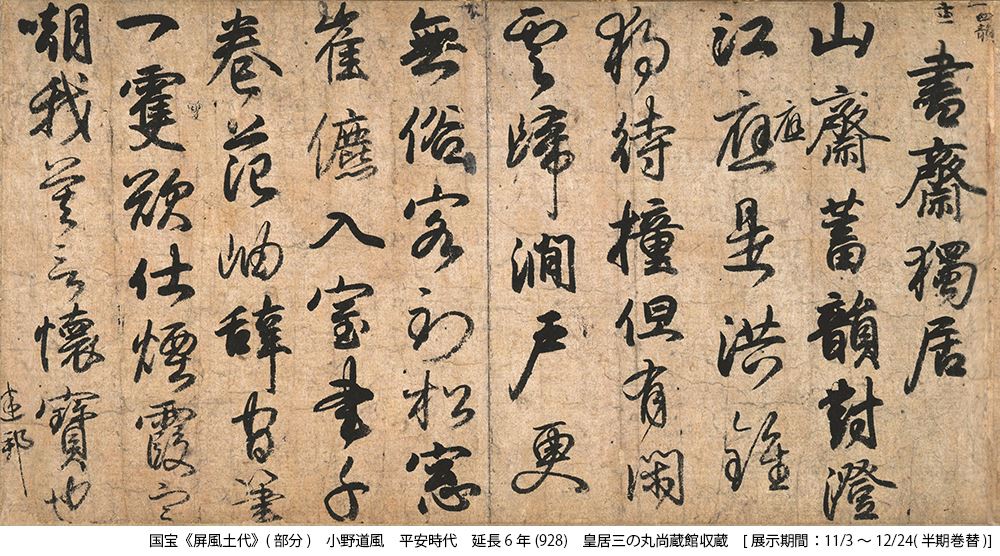 四韻
書齋獨居
山齋蓄韻對澄
江應應是洪鐘
待撞但有閑
雲歸澗戶更
無俗客到松窓
崔儦入室書千
卷范岫辭官筆
一雙欲仕煙霞
嘲我莫言懷寶也
迷邦
国宝《屏風土代》(部分) 小野道風 平安時代 延長6年(928) 皇居三の丸尚蔵館収蔵 [展示期間:11/3～12/24(半期巻替)]